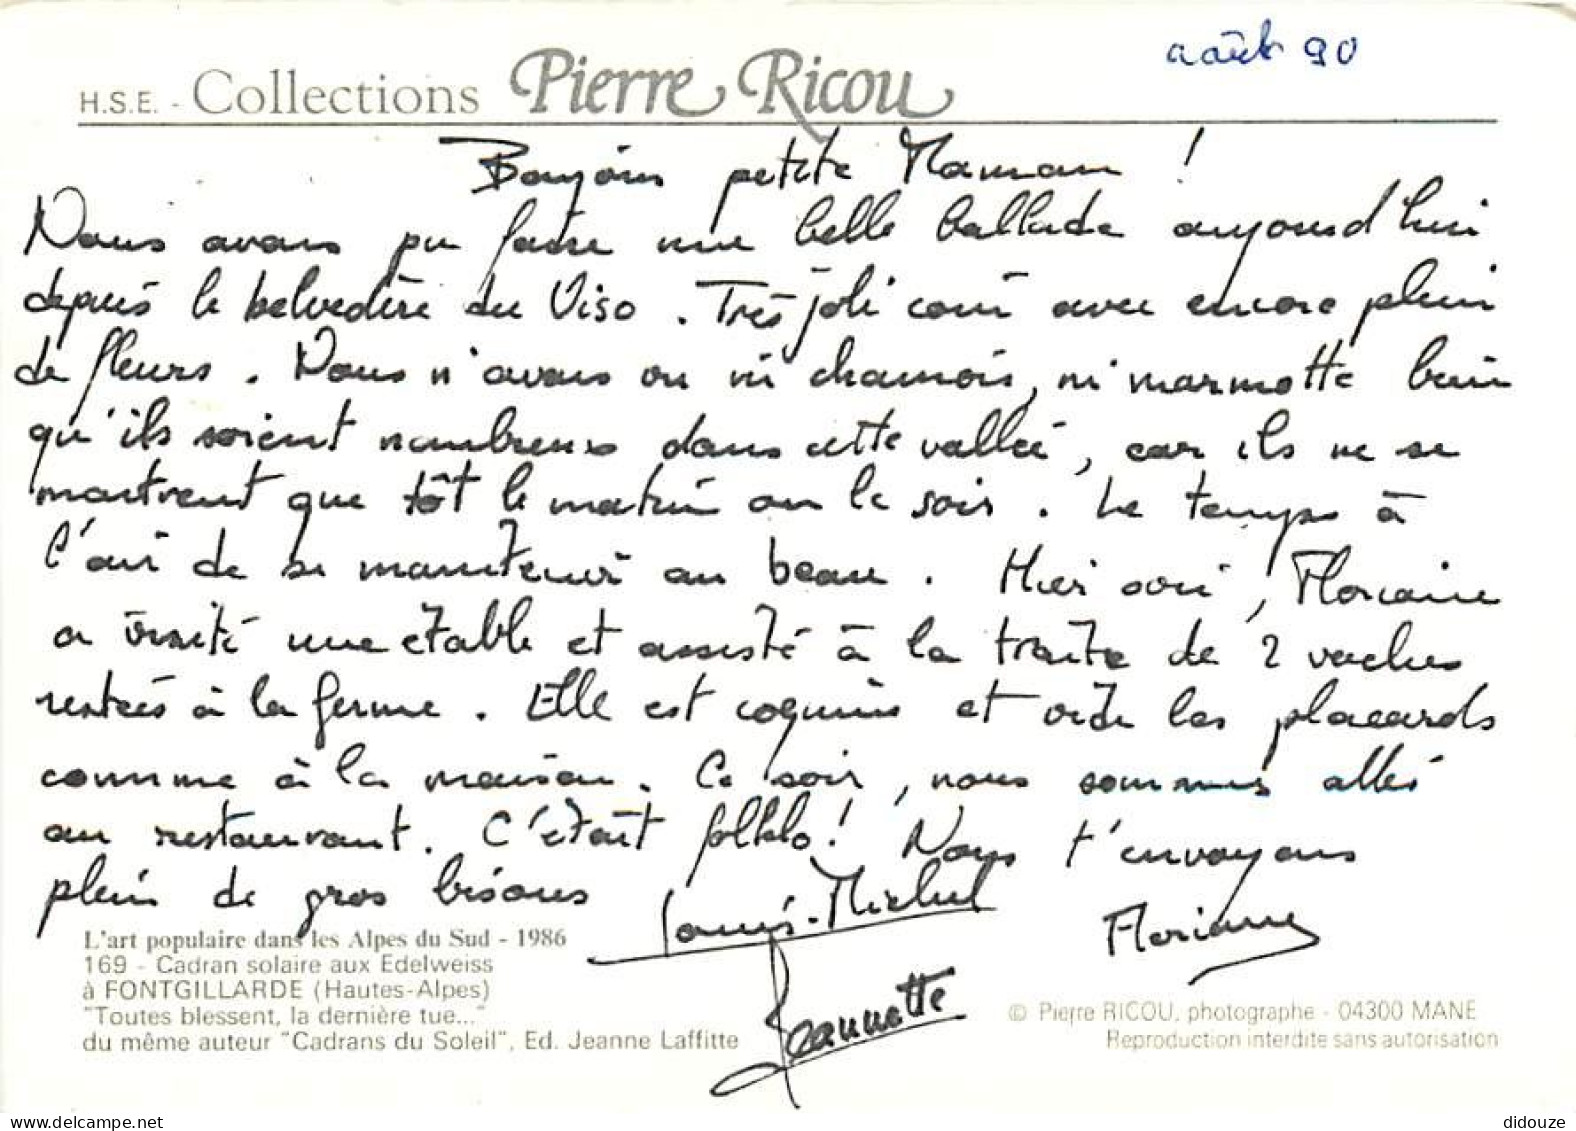 août 90
H.S.E. - Collections Pierre Ricou
Bonjour petite Maman !
Nous avons pu faire une belle ballade aujourd'hui
depuis le belvédère du Viso. Très joli coin avec encore plein
de fleurs. Nous n'avons vu ni chamois, ni marmotte bien
qu'ils soient nombreux dans cette vallée, car ils ne se
montrent que tôt le matin ou le soir. Le temps à
l'air de se maintenir au beau. Hier soir, Floriane
a visité une étable et assisté à la traite de 2 vaches
restées à la ferme. Elle est coquine et vide les placards
comme à la maison. Ce soir, nous sommes allés
au restaurant. C'était folklo! Nous t'envoyons
plein de gros bisous
Louis-Michel
Floriane
Jeannette
L'art populaire dans les Alpes du Sud - 1986
169 - Cadran solaire aux Edelweiss
à FONTGILLARDE (Hautes-Alpes)
"Toutes blessent, la dernière tue..."
du même auteur "Cadrans du Soleil", Ed. Jeanne Laffitte
© Pierre RICOU, photographe - 04300 MANE
Reproduction interdite sans autorisation
www.delcampe.net
didouze